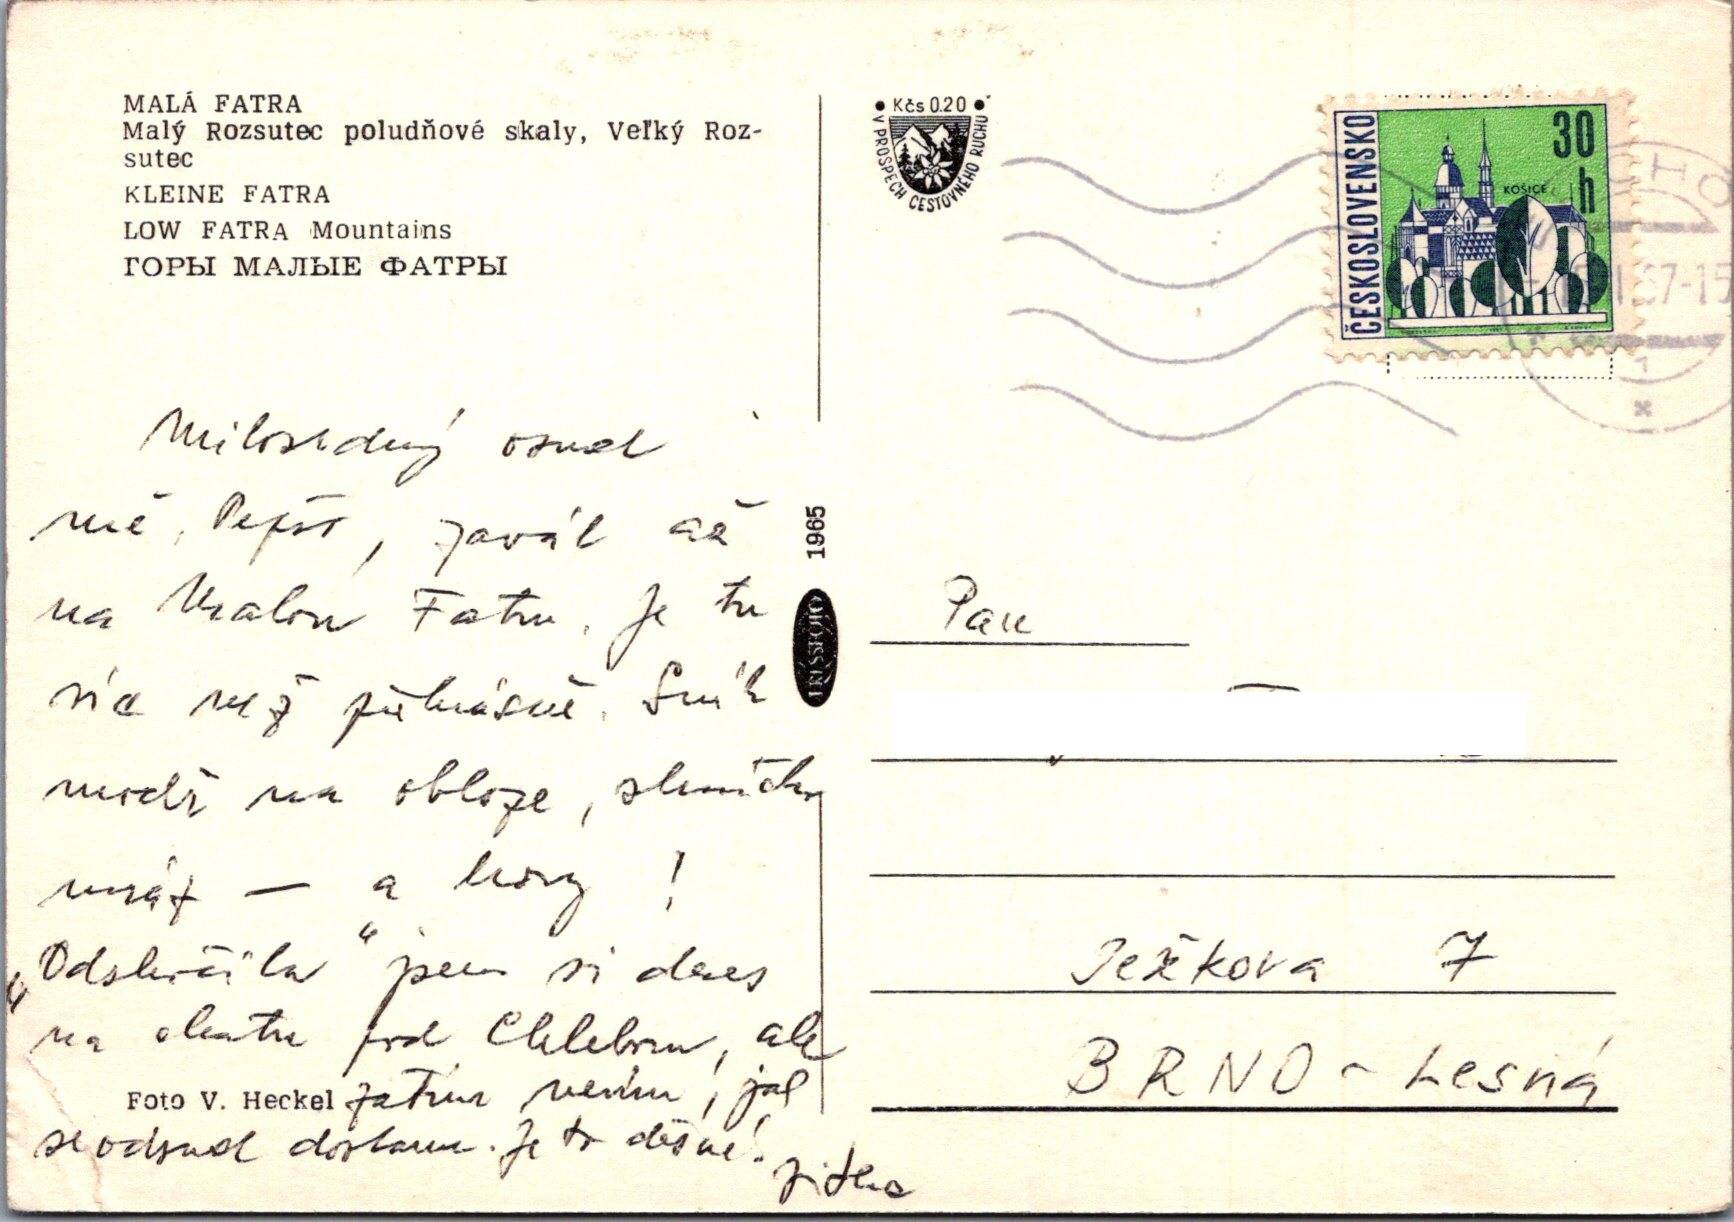 MALÁ FATRA
Malý Rozsutec poludňové skaly, Veľký Roz-
sutec
KLEINE FATRA
LOW FATRA Mountains
ГОРЫ МАЛЫЕ ФАТРЫ
Kčs 0.20
V PROSPECH CESTOVNÉHO RUCHU
ČESKOSLOVENSKO
30
h
KOŠICE
67-15
1
Milosrdný osud
mě, Pepíčku, zavál až
na Malou Fatru. Je tu
více než překrásně. Sníh
modř na obloze, sluníčko
mráz — a hory!
"Odskočila" jsem si dnes
na chatu pod Chlebom, ale
zatím nevím, jak
se odsud dostanu. Je to děsné!
Jitka
1965
PRESSFOTO
Foto V. Heckel
Pan
Ježkova 7
BRNO - Lesná